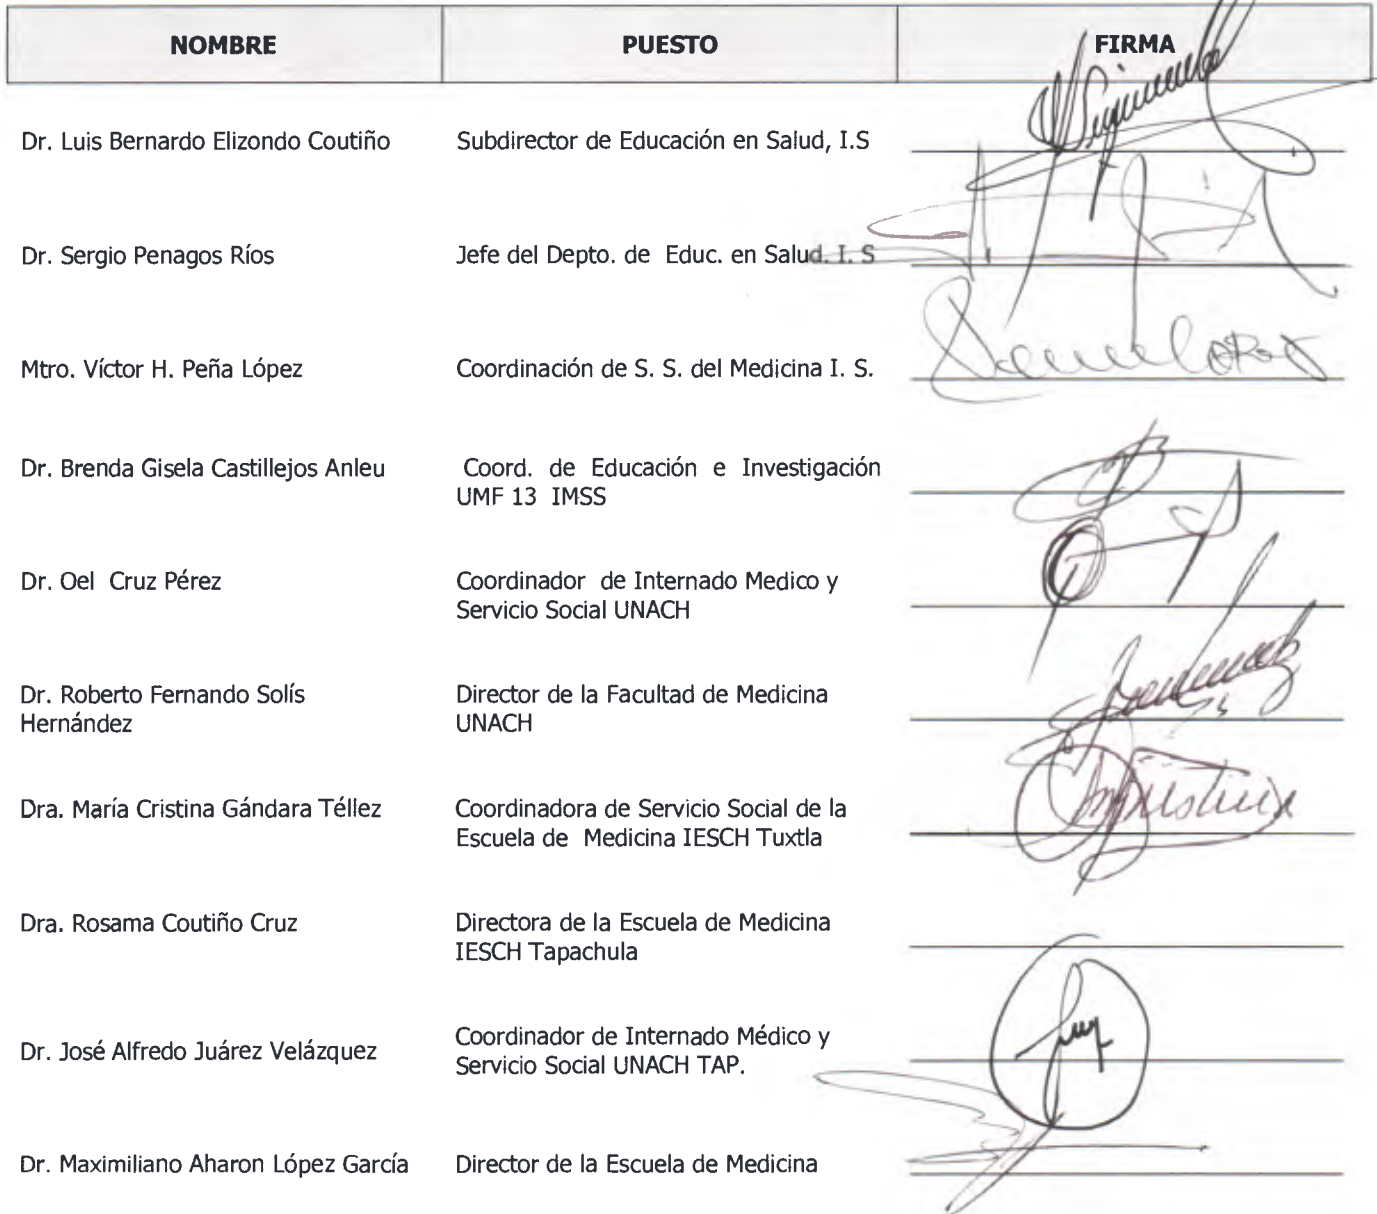 NOMBRE PUESTO FIRMA
Dr. Luis Bernardo Elizondo Coutiño Subdirector de Educación en Salud, I.S
Dr. Sergio Penagos Ríos Jefe del Depto. de Educ. en Salud. I. S
Mtro. Víctor H. Peña López Coordinación de S. S. del Medicina I. S.
Dr. Brenda Gisela Castillejos Anleu Coord. de Educación e Investigación
UMF 13 IMSS
Dr. Oel Cruz Pérez Coordinador de Internado Medico y
Servicio Social UNACH
Dr. Roberto Fernando Solís Director de la Facultad de Medicina
Hernández UNACH
Dra. María Cristina Gándara Téllez Coordinadora de Servicio Social de la
Escuela de Medicina IESCH Tuxtla
Dra. Rosama Coutiño Cruz Directora de la Escuela de Medicina
IESCH Tapachula
Dr. José Alfredo Juárez Velázquez Coordinador de Internado Médico y
Servicio Social UNACH TAP.
Dr. Maximiliano Aharon López García Director de la Escuela de Medicina